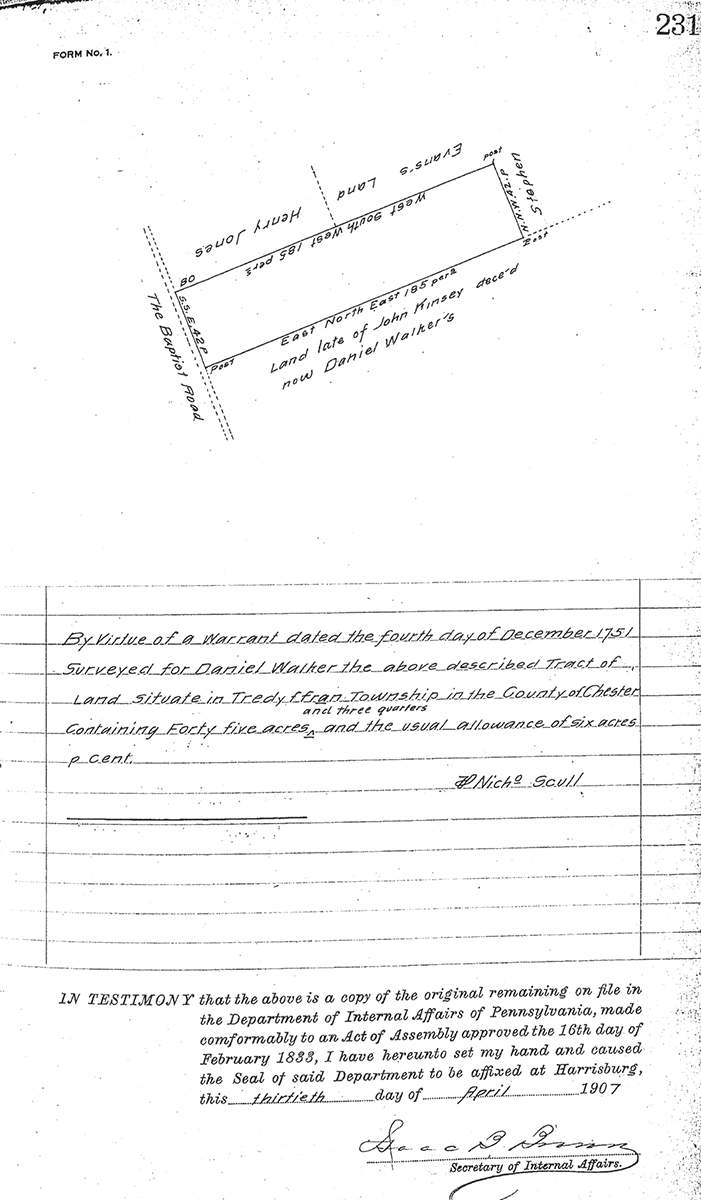 231
FORM No. 1.
Stephen
Evans's Land
Henry Jones
post
N.N.W. 42. P
West South West 185 pers
BO
S.S.E. 42 P
Post
post
East North East 185 pers
Land late of John Kinsey dece'd
now Daniel Walker's
The Baptist Road
By Virtue of a Warrant dated the fourth day of December 1751
Surveyed for Daniel Walker the above described Tract of
Land situate in Tredyffran Township in the County of Chester
and three quarters
Containing Forty five acres^ and the usual allowance of six acres
p cent.
Nicho Scull
IN TESTIMONY that the above is a copy of the original remaining on file in
the Department of Internal Affairs of Pennsylvania, made
comformably to an Act of Assembly approved the 16th day of
February 1833, I have hereunto set my hand and caused
the Seal of said Department to be affixed at Harrisburg,
this thirtieth day of April 1907
Isaac B. Brown
Secretary of Internal Affairs.